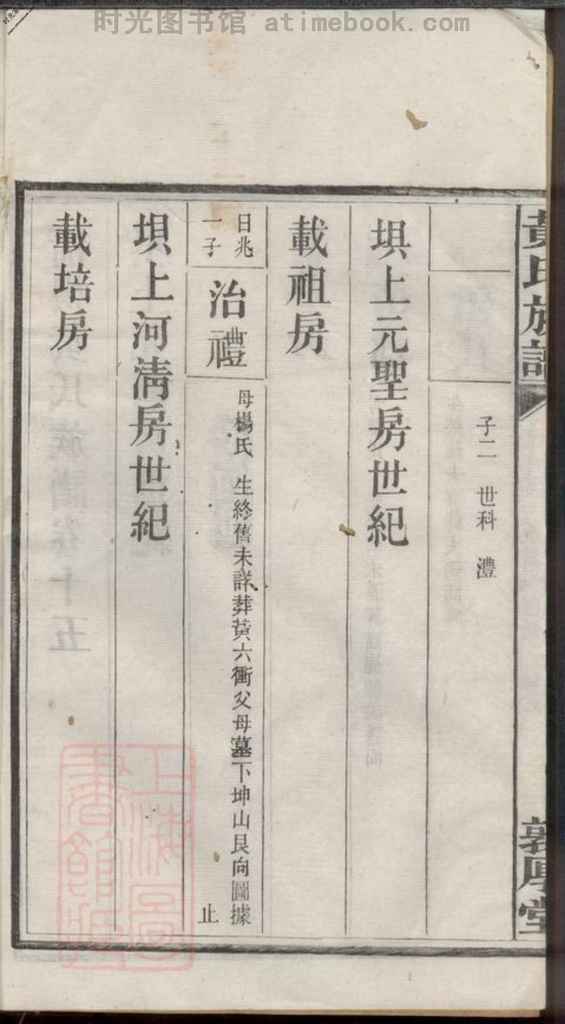 时光图书馆 atimebook.com
黃氏族譜
敦厚堂
子二 世科 澧
垻上元聖房世紀
載祖房
日兆
一子
治禮
母楊氏 生終舊未詳葬黃六衝父母墓下坤山艮向圖據
止
垻上河清房世紀
載培房
上海圖
書館藏